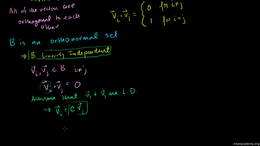 All of the vectors are
orthogonal to each
other
B is an orthonormal set
⇒ B Linearly Independent
v⃗ᵢ, v⃗ⱼ ∈ B i≠j
v⃗ᵢ · v⃗ⱼ = 0
Assume that v⃗ᵢ + v⃗ⱼ are L.D.
→ v⃗ᵢ = c v⃗ⱼ
v⃗ᵢ · v⃗ⱼ = { 0 for i≠j
1 for i=j
khanacademy.org